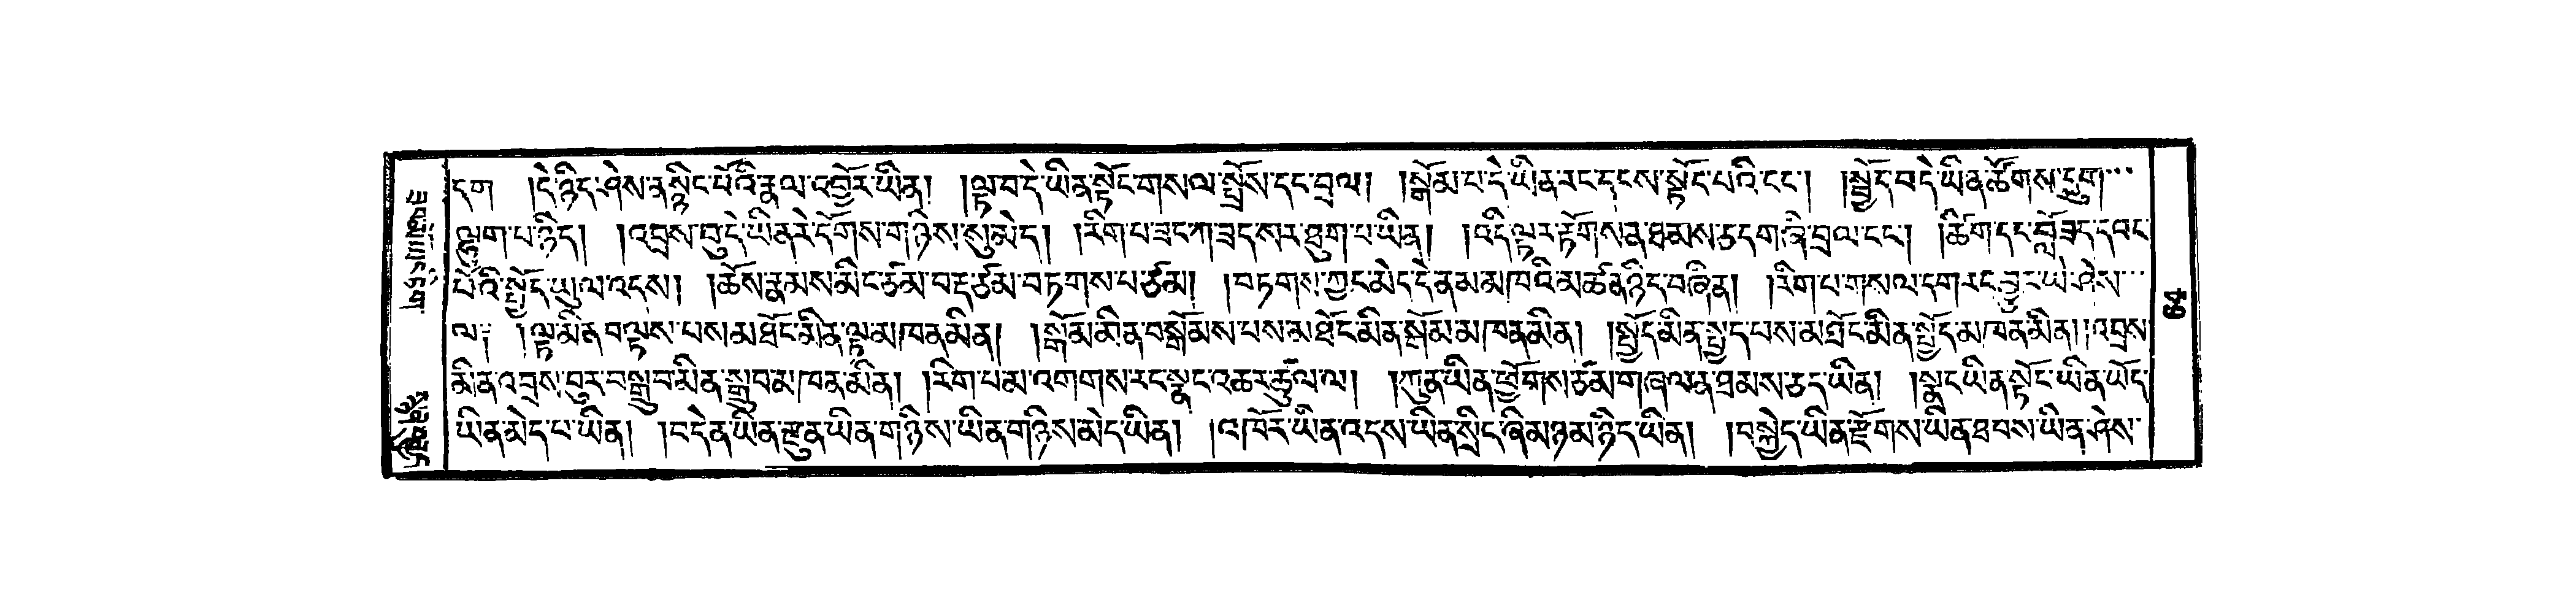 དག །དེ་ཉིད་ཤེས་ན་སྙིང་པོའི་རྣལ་འབྱོར་ཡིན། །ལྟ་བ་དེ་ཡིན་སྟོང་གསལ་སྤྲོས་དང་བྲལ། །སྒོམ་པ་དེ་ཡིན་རང་དངས་སྟོད་པའི་ངང་། །སྤྱོད་བདེ་ཡིན་ཚོགས་དྲུག་...
ལྷུག་པ་ཉིད། །འབྲས་བུ་དེ་ཡིན་རེ་དོགས་གཉིས་སུ་མེད། །རིག་པ་ཟང་ཀ་ཟད་སར་ཐུག་པ་ཡིན། །འདི་ལྟར་རྟོགས་ན་ཐམས་ཅད་གཞི་བྲལ་ངང་། །ཚིག་དང་བློ་ཟད་དབང་
པོའི་སྤྱོད་ཡུལ་འདས། །ཆོས་རྣམས་མིང་ཙམ་བརྡ་ཙམ་བཏགས་པ་ཙམ། །བཏགས་ཀྱང་མེད་དེ་ནམ་མཁའི་མཚན་ཉིད་བཞིན། །རིག་པ་གསལ་དག་རང་བྱུང་ཡེ་ཤེས་...
ལ༔ །ལྟ་མིན་བལྟས་པས་མ་ཐོང་མིན་ལྟ་མཁན་མིན། །སྒོམ་མིན་བསྒོམས་པས་མ་ཐོང་མིན་སྒོམ་མཁན་མིན། །སྤྱོད་མིན་སྤྱད་པས་མ་ཐོང་མིན་སྤྱོད་མཁན་མིན། །འབྲས་
མིན་འབྲས་བུར་བསྒྲུབ་མིན་སྒྲུབ་མཁན་མིན། །རིག་པ་མ་འགགས་རང་སྣང་འཆར་ཚུལ་ལ། །ཀུན་ཡིན་ཕྱོགས་ཙམ་གཞལ་ན་ཐམས་ཅད་ཡིན། །སྣང་ཡིན་སྟོང་ཡིན་ཡོད་
ཡིན་མེད་པ་ཡིན། །བདེན་ཡིན་རྫུན་ཡིན་གཉིས་ཡིན་གཉིས་མེད་ཡིན། །འཁོར་ཡིན་འདས་ཡིན་སྲིད་ཞི་མཉམ་ཉིད་ཡིན། །བསྐྱེད་ཡིན་རྫོགས་ཡིན་ཐབས་ཡིན་ཤེས་